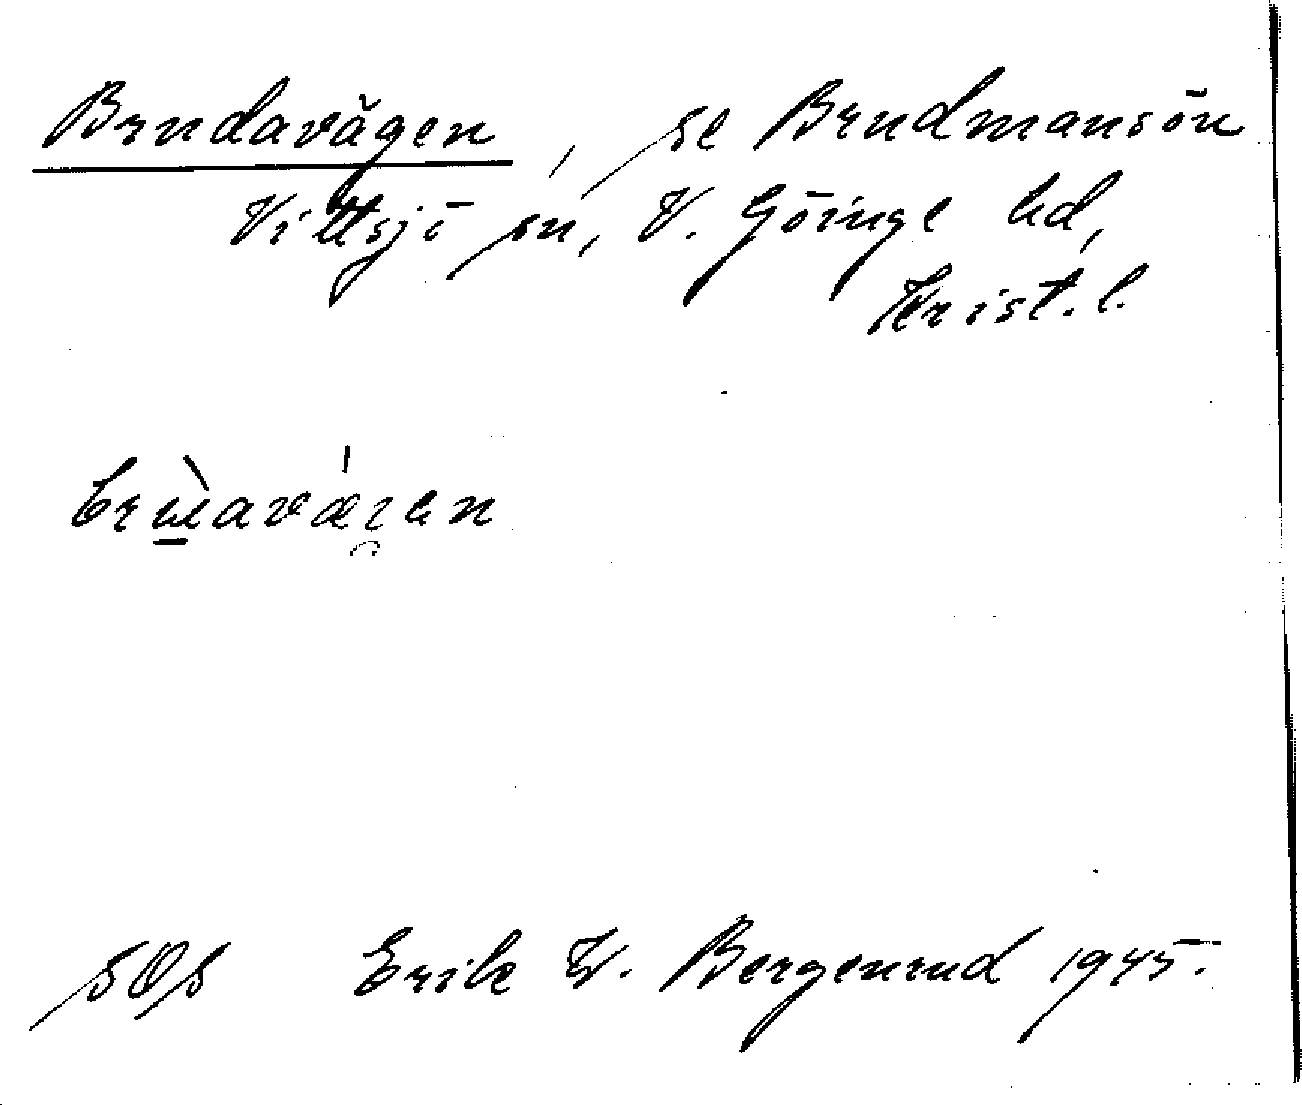 Brudavägen, se Brudmansön
Vittsjö sn, V. Göinge hd,
Krist. l.
SOS Erik W. Bergenrud 1945.